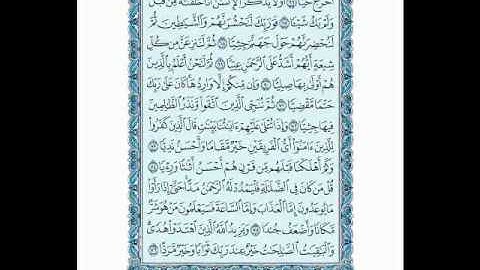 أُخْرَجُ حَيًّا أَوَلَا يَذْكُرُ الْإِنسَٰنُ أَنَّا خَلَقْنَٰهُ مِن قَبْلُ
وَلَمْ يَكُ شَيْـًٔا فَوَرَبِّكَ لَنَحْشُرَنَّهُمْ وَالشَّيَٰطِينَ ثُمَّ
لَنُحْضِرَنَّهُمْ حَوْلَ جَهَنَّمَ جُثِيًّا ثُمَّ لَنَنزِعَنَّ مِن كُلِّ
شِيعَةٍ أَيُّهُمْ أَشَدُّ عَلَى الرَّحْمَٰنِ عُتِيًّا ثُمَّ لَنَحْنُ أَعْلَمُ بِالَّذِينَ
هُمْ أَوْلَىٰ بِهَا صُلِيًّا وَإِن مِّنكُمْ إِلَّا وَارِدُهَا كَانَ عَلَىٰ رَبِّكَ
حَتْمًا مَّقْضِيًّا ثُمَّ نُنَجِّي الَّذِينَ اتَّقَوا وَّنَذَرُ الظَّٰلِمِينَ
فِيهَا جُثِيًّا وَإِذَا تُتْلَىٰ عَلَيْهِمْ ءَايَٰتُنَا بَيِّنَٰتٍ قَالَ الَّذِينَ كَفَرُوا
لِلَّذِينَ ءَامَنُوا أَيُّ الْفَرِيقَيْنِ خَيْرٌ مَّقَامًا وَأَحْسَنُ نَدِيًّا
وَكَمْ أَهْلَكْنَا قَبْلَهُم مِّن قَرْنٍ هُمْ أَحْسَنُ أَثَٰثًا وَرِيًّا
قُلْ مَن كَانَ فِي الضَّلَٰلَةِ فَلْيَمْدُدْ لَهُ الرَّحْمَٰنُ مَدًّا حَتَّىٰ إِذَا رَأَوْا
مَا يُوعَدُونَ إِمَّا الْعَذَابَ وَإِمَّا السَّاعَةَ فَسَيَعْلَمُونَ مَنْ هُوَ شَرٌّ
مَّكَانًا وَأَضْعَفُ جُندًا وَيَزِيدُ اللَّهُ الَّذِينَ اهْتَدَوْا هُدًى
وَالْبَٰقِيَٰتُ الصَّٰلِحَٰتُ خَيْرٌ عِندَ رَبِّكَ ثَوَابًا وَخَيْرٌ مَّرَدًّا